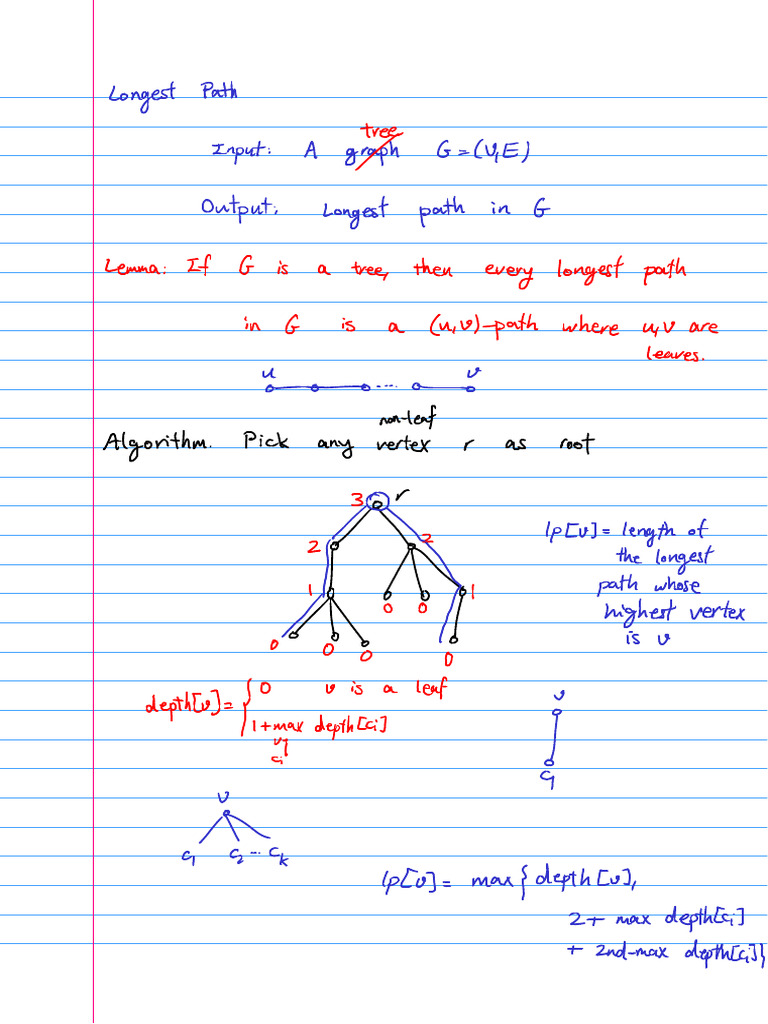 Longest Path
tree
Input: A graph G=(V,E)
Output: Longest path in G
Lemma: If G is a tree, then every longest path
in G is a (u,v)-path where u,v are
leaves.
u v
...
non-leaf
Algorithm. Pick any vertex r as root
3 r
2 2
1 0 0 1
0 0 0 0
lp[v] = length of
the longest
path whose
highest vertex
is v
depth[v] = { 0 v is a leaf
1+max depth[ci]
v
ci
v
c1
v
c1 c2 ... ck
lp[v] = max{ depth[v],
2+ max depth[ci]
+ 2nd-max depth[ci]}